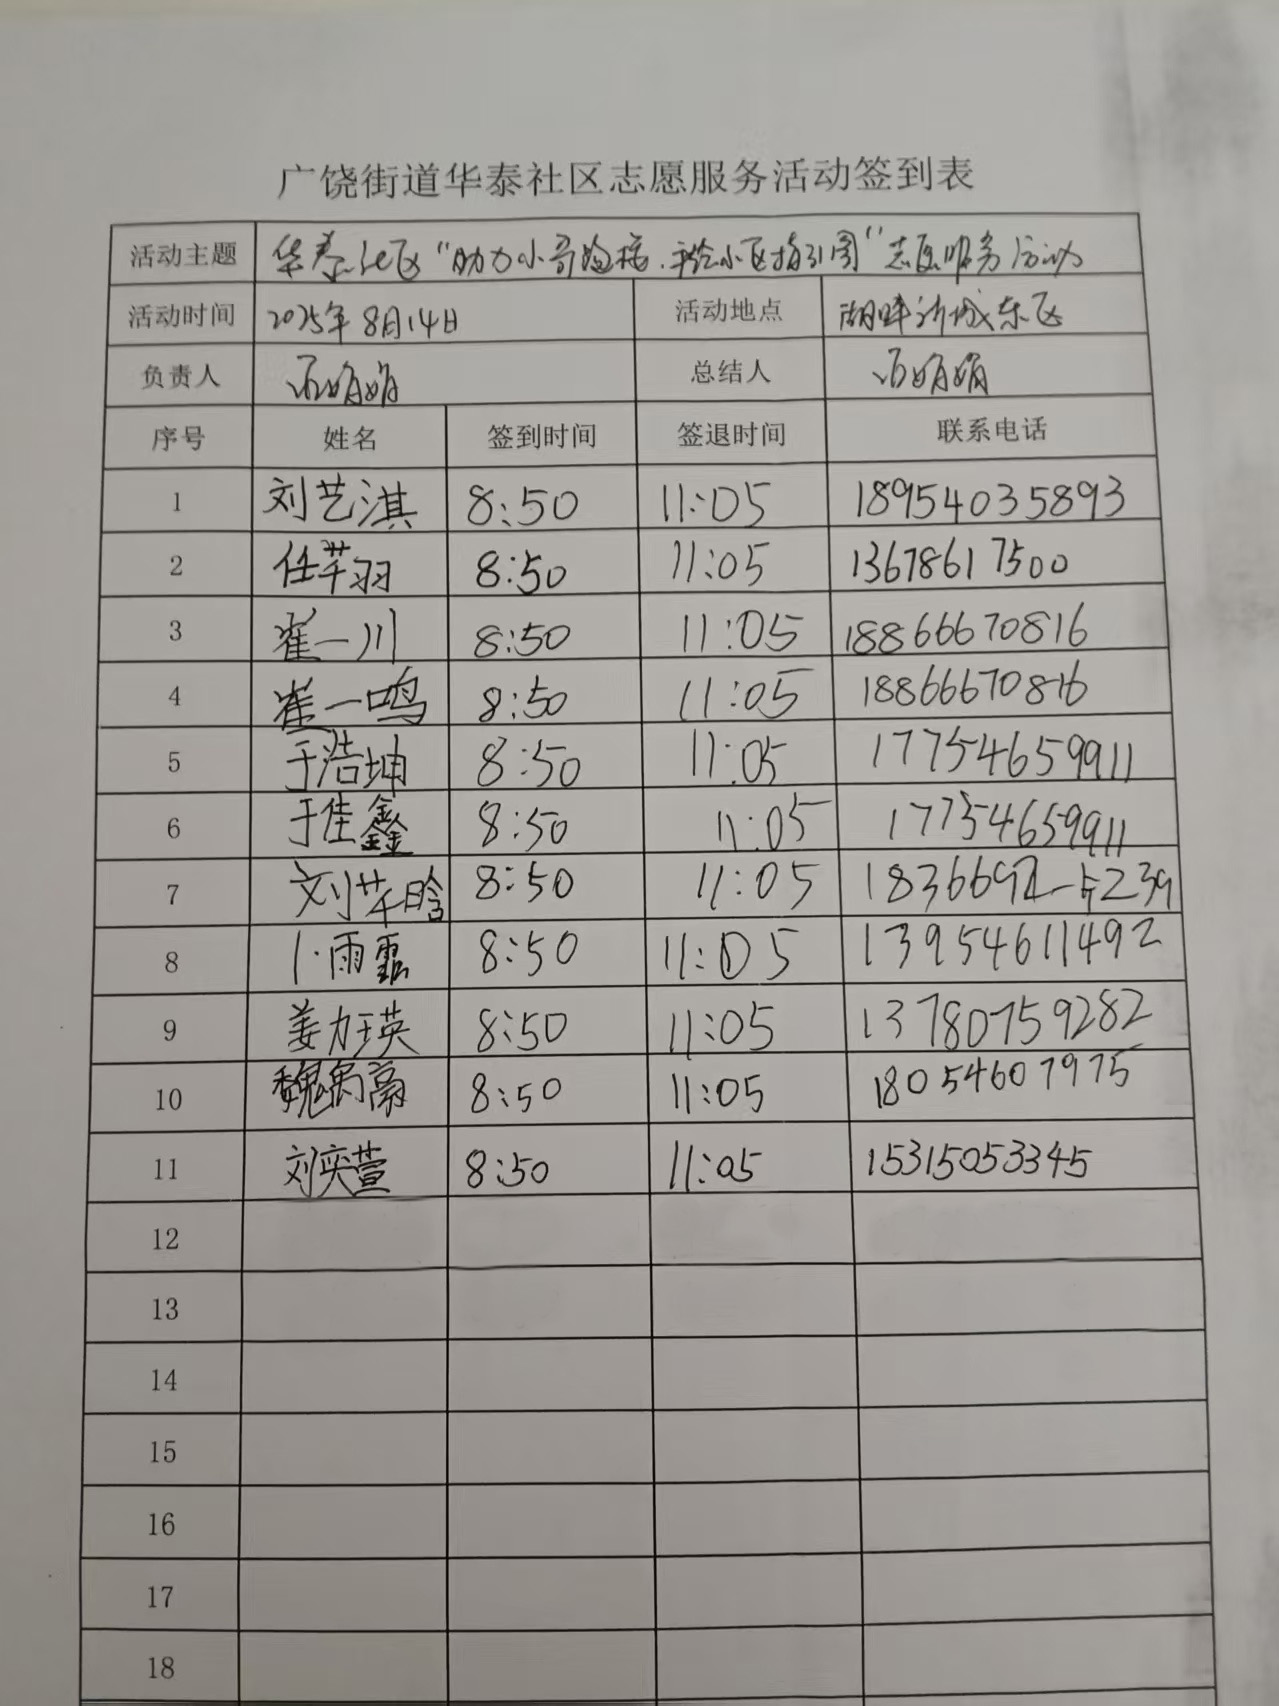 广饶街道华泰社区志愿服务活动签到表
活动主题 华泰社区“助力小哥 手绘小区指引图”志愿服务活动
活动时间 2025年8月14日 活动地点 湖畔新城东区
负责人 石娟娟 总结人 石娟娟
序号 姓名 签到时间 签退时间 联系电话
1 刘艺淇 8:50 11:05 18954035893
2 任芊羽 8:50 11:05 13678617500
3 崔一川 8:50 11:05 18866670816
4 崔一鸣 8:50 11:05 18866670816
5 于浩坤 8:50 11:05 17754659911
6 于佳鑫 8:50 11:05 17754659911
7 刘芊晗 8:50 11:05
8 雨 8:50 11:05 13954611492
9 姜 英 8:50 11:05 13780759282
10 魏禹 8:50 11:05 18054607975
11 刘奕萱 8:50 11:05 15315053345
12
13
14
15
16
17
18